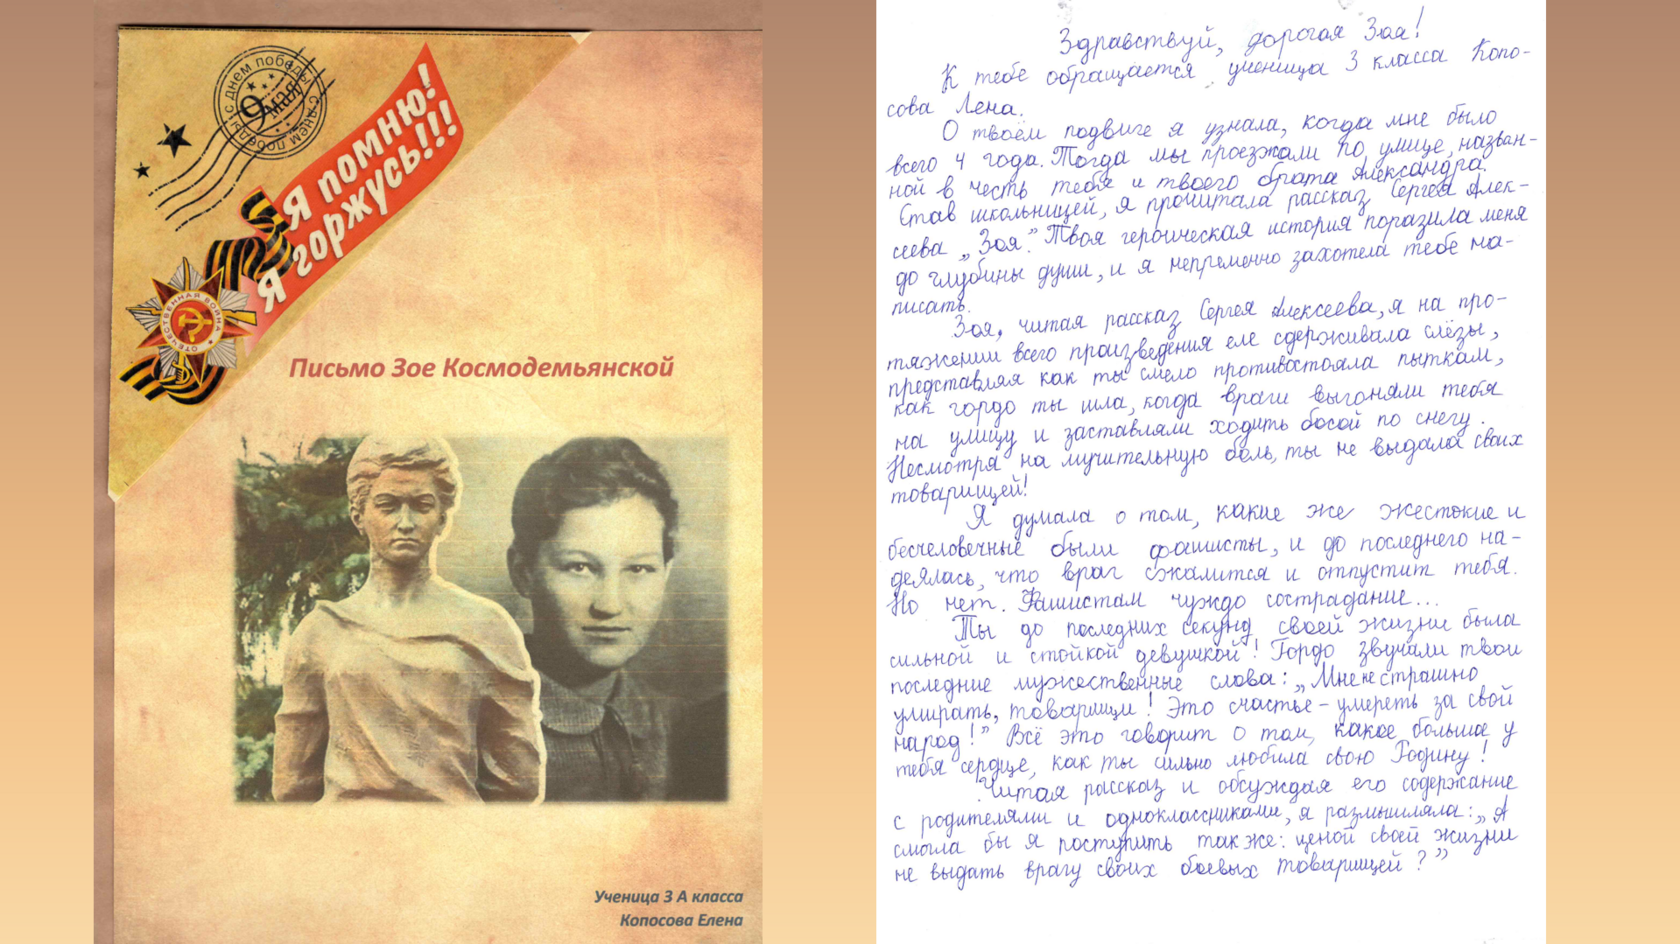 с днем победы
с днем победы
9 мая
Я помню!
Я горжусь!!!
ОТЕЧЕСТВЕННАЯ ВОЙНА
Письмо Зое Космодемьянской
Ученица 3 А класса
Копосова Елена
Здравствуй, дорогая Зоя!
К тебе обращается ученица 3 класса Копо-
сова Лена.
О твоём подвиге я узнала, когда мне было
всего 4 года. Тогда мы проезжали по улице, назван-
ной в честь тебя и твоего брата Александра.
Став школьницей, я прочитала рассказ Сергея Алек-
сеева „Зоя". Твоя героическая история поразила меня
до глубины души, и я непременно захотела тебе на-
писать.
Зоя, читая рассказ Сергея Алексеева, я на про-
тяжении всего произведения еле сдерживала слёзы,
представляя как ты смело противостояла пыткам,
как гордо ты шла, когда враги выгоняли тебя
на улицу и заставляли ходить босой по снегу.
Несмотря на мучительную боль, ты не выдала своих
товарищей!
Я думала о том, какие же жестокие и
бесчеловечные были фашисты, и до последнего на-
деялась, что враг сжалится и отпустит тебя.
Но нет. Фашистам чуждо сострадание...
Ты до последних секунд своей жизни была
сильной и стойкой девушкой! Гордо звучали твои
последние мужественные слова: „Мне не страшно
умирать, товарищи! Это счастье - умереть за свой
народ!" Всё это говорит о том, какое большое у
тебя сердце, как ты сильно любила свою Родину!
Читая рассказ и обсуждая его содержание
с родителями и одноклассниками, я размышляла: „А
смогла бы я поступить также: ценой своей жизни
не выдать врагу своих боевых товарищей?"